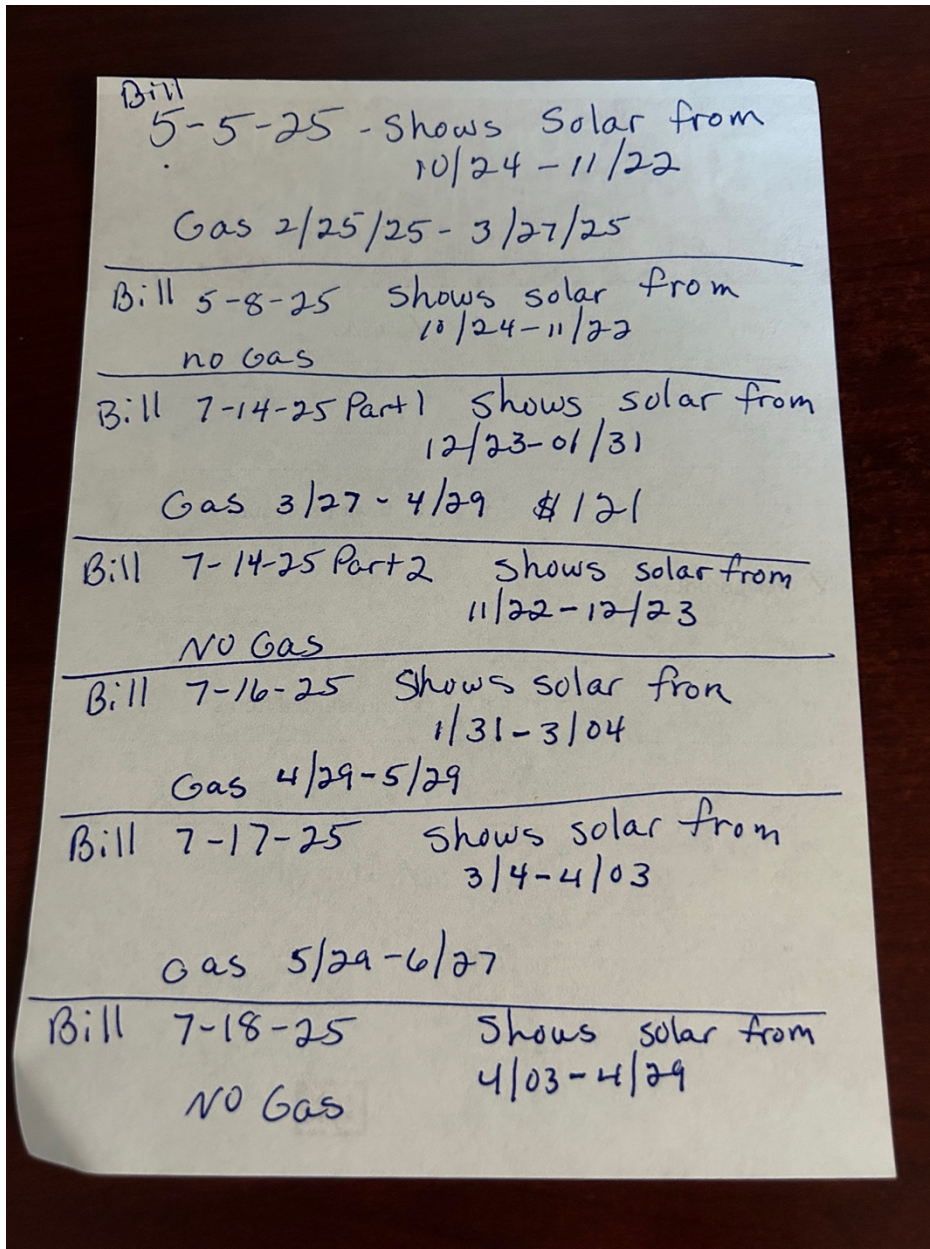 Bill
5-5-25 - Shows Solar from
10/24 - 11/22
Gas 2/25/25 - 3/27/25
Bill 5-8-25 Shows solar from
10/24-11/22
no Gas
Bill 7-14-25 Part 1 Shows solar from
12/23-01/31
Gas 3/27 - 4/29 $121
Bill 7-14-25 Part 2 Shows solar from
11/22-12/23
NO Gas
Bill 7-16-25 Shows solar fron
1/31-3/04
Gas 4/29-5/29
Bill 7-17-25 Shows solar from
3/4-4/03
Gas 5/29-6/27
Bill 7-18-25 Shows solar from
4/03-4/29
NO Gas